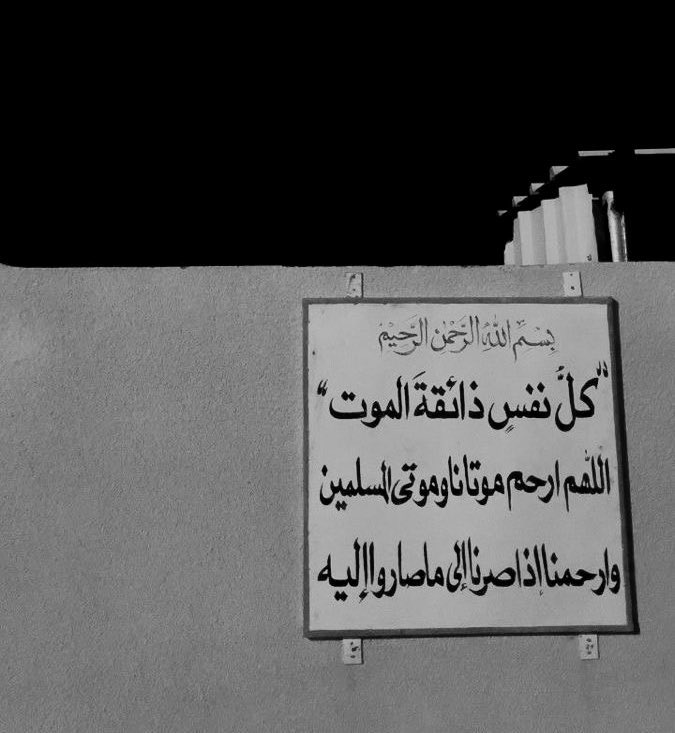 بِسْمِ اللهِ الرَّحْمٰنِ الرَّحِيْمِ
"كلُّ نفسٍ ذائقةَ الموت"
اللهم ارحم موتانا وموتى المسلمين
وارحمنا إذا صرنا إلى ما صاروا إليه